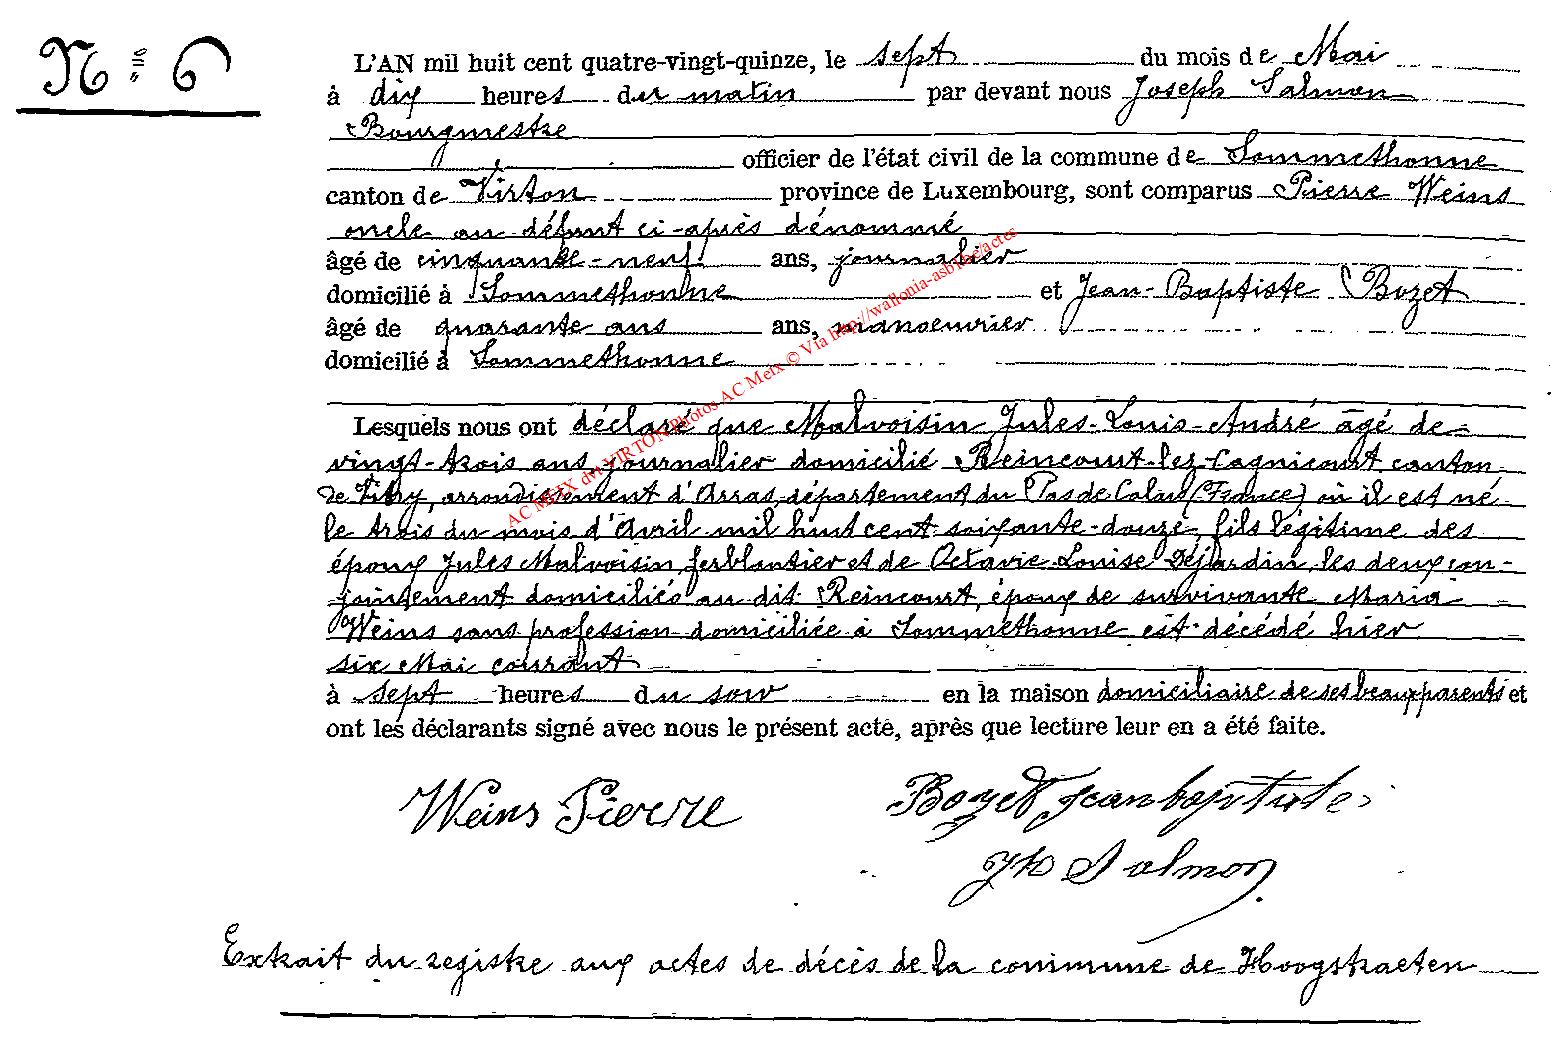 Nº 6
L'AN mil huit cent quatre-vingt-quinze, le sept du mois de Mai
à dix heures du matin par devant nous Joseph Salmon
Bourgmestre
officier de l'état civil de la commune de Sommethonne
canton de Virton province de Luxembourg, sont comparus Pierre Weins
oncle au défunt ci-après dénommé
âgé de cinquante-neuf ans, journalier
domicilié à Sommethonne et Jean-Baptiste Bozet
âgé de quarante ans ans, manoeuvrier
domicilié à Sommethonne
Lesquels nous ont déclaré que Malvoisin Jules-Louis-André âgé de
vingt-trois ans journalier domicilié Reincourt-lez-Cagnicourt canton
de Vitry, arrondissement d'Arras, département du Pas de Calais (France) où il est né
le trois du mois d'Avril mil huit cent soixante-douze, fils légitime des
époux Jules Malvoisin, ferblantier et de Octavie-Louise Déjardin, les deux con-
jointement domiciliés au dit Reincourt, époux de survivante Maria
Weins sans profession domiciliée à Sommethonne est décédé hier
six Mai courant
à sept heures du soir en la maison domiciliaire de ses beaux parents et
ont les déclarants signé avec nous le présent acte, après que lecture leur en a été faite.
Weins Pierre Bozet Jean baptiste
Jh Salmon
Extrait du registre aux actes de décès de la commune de Hoogstraeten
AC MEIX dvt VIRTON Photos AC Meix © Via http://wallonia-asbl.be/actes